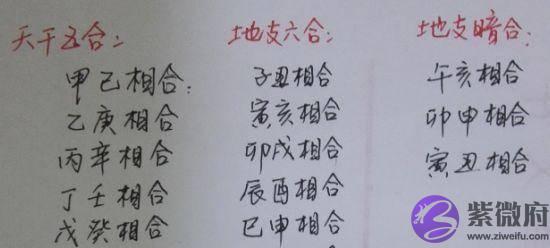 天干五合：
甲己相合：
乙庚相合
丙辛相合
丁壬相合
戊癸相合
地支六合：
子丑相合
寅亥相合
卯戌相合
辰酉相合
巳申相合
地支暗合：
午亥相合
卯申相合
寅丑相合
紫微府
www.ziweifu.com